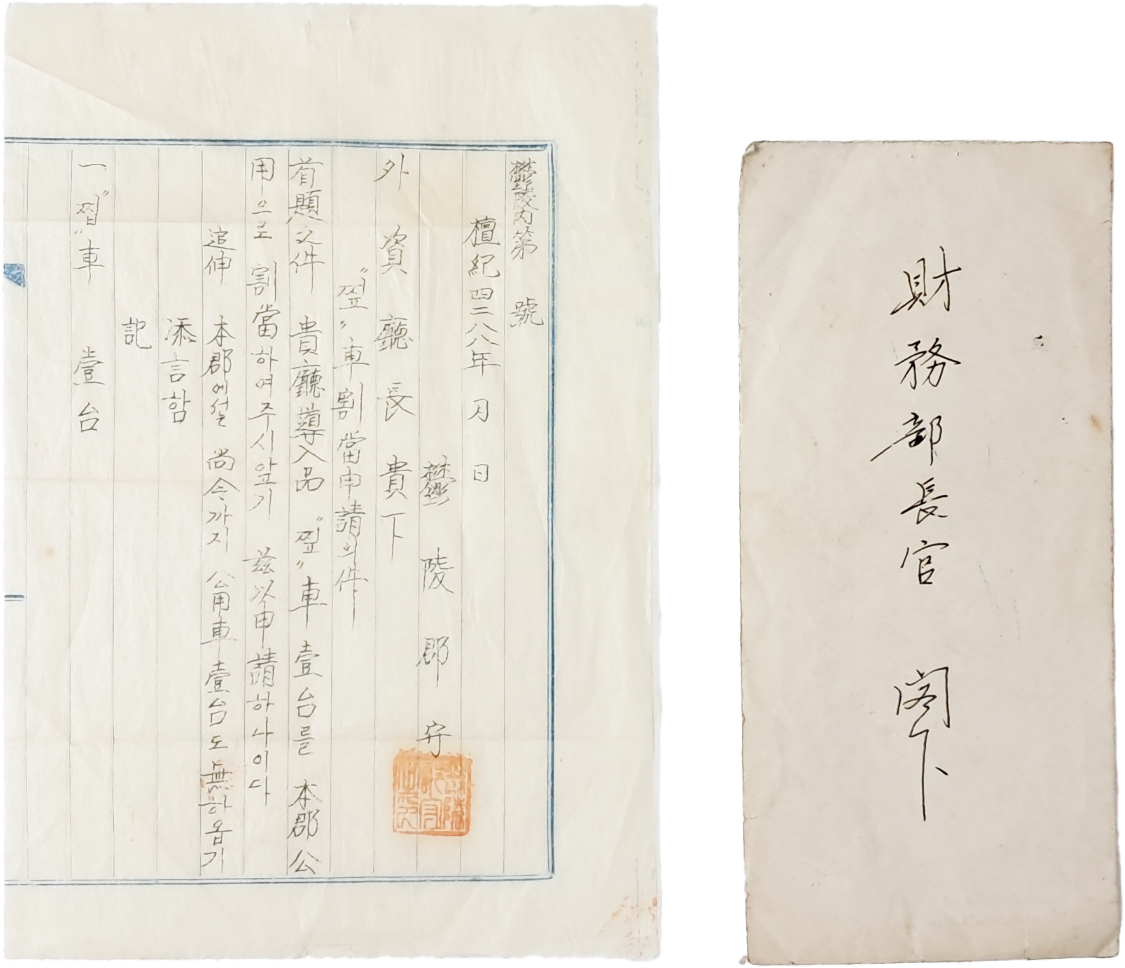 鬱陵內第　　號
檀紀四二八八年　月　日
鬱陵郡守
外資廳長貴下
“찦”車割當申請의件
首題之件 貴廳導入品 “찦”車 壹台를 本郡公
用으로 割當하여주시앞기 玆以申請하나이다
追伸 本郡에선 尙今까지 公用車壹台도 無하옵기
添言함
記
一 “찝”車 壹台
財務部長官 閣下